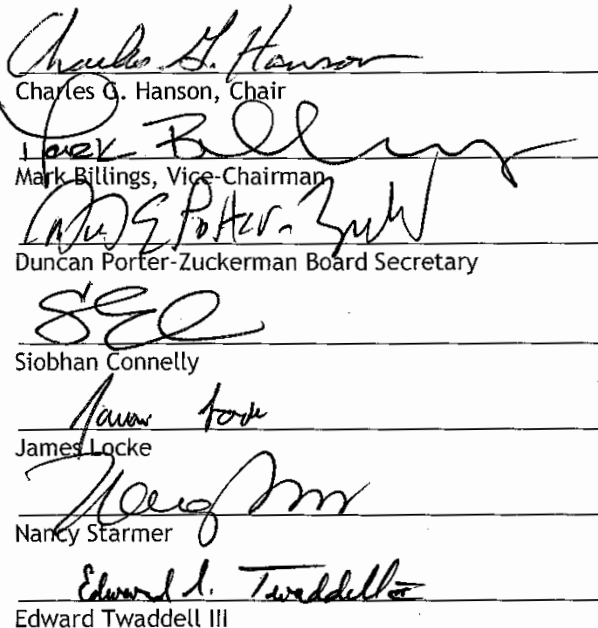 Charles G. Hanson
Charles G. Hanson, Chair
Mark Billings
Mark Billings, Vice-Chairman
Porter-
Duncan Porter-Zuckerman Board Secretary
Siobhan Connelly
James Locke
James Locke
Nancy Starmer
Edward I. Twaddell III
Edward Twaddell III